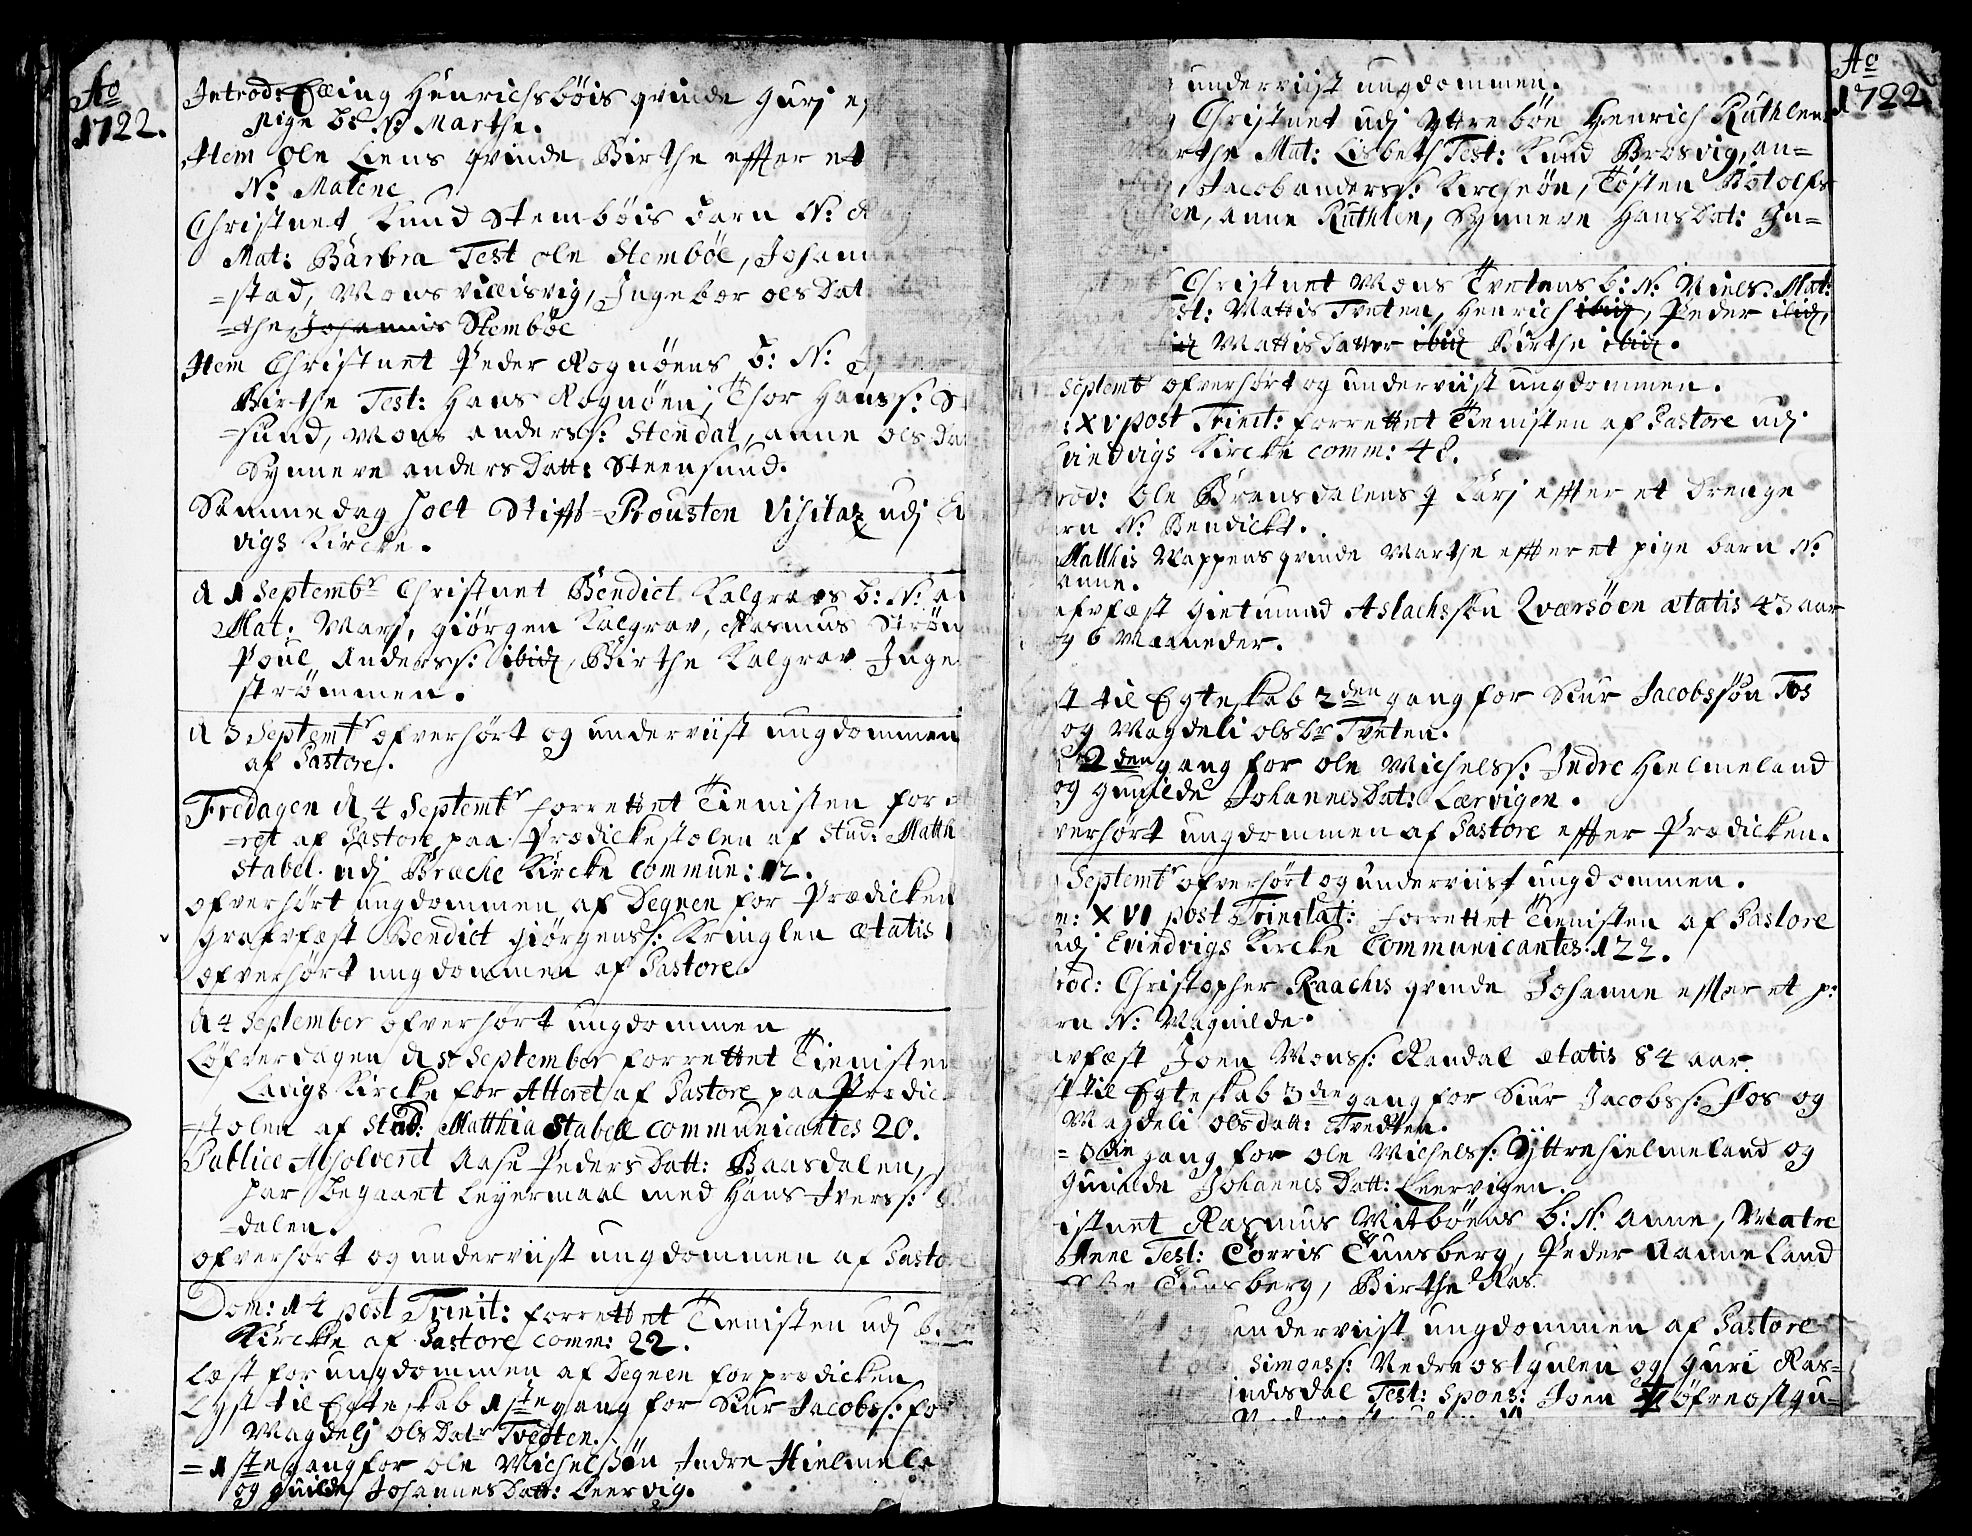 Ao
1722.
Introd: Elling Henrichsbøis qvinde Gurj e
pige b: N: Marthe.
Item Ole Liens qvinde Birthe effter et
N: Malene
Christnet Knud Stembøis barn N: Rag
Mat: Barbra Test Ole Stembøe, Johanne
=stad, Mons Villisvig, Ingebor olsdat
=the Johannis Stembøe
Item Christnet Peder Rognøens b: N:
Birthe Test: Hans Rognøen, Thor Hanss: S
=sund, Mons anderss: Stendal, anne olsda
Synneve andersdatt: Steensund.
Samme dag holt Stiffts=Prousten Visitaz udj Ei
vigs Kircke.
d 1 Septembr Christnet Bendict Kalgravs b: N: a
Mat: Marj, Giørgen Kalgrav, Rasmus Strøm
Poul Anderss: ibid, Birthe Kalgrav Inge
strømmen.
d 3 Septembr ofverhørt og underviist ungdommen
af Pastore.
Fredagen d 4 Septembr forrettet Tienisten for
=ret af Pastore, paa Prædickestolen af Stud: Matth
Stabel. udj Bræche Kircke Commun: 12.
ofverhørt ungdommen af Degnen for Prædicken
Grafvfæst Bendict Giørgenss: Kringlen ætatis 1
ofverhørt ungdommen af Pastore.
d 4 September ofverhørt ungdommen
Løfverdagen d 5 September forrettet Tienisten
Lavigs Kircke for Alteret af Pastore paa Prædic
=stolen af Stud: Matthia Stabell communicantes 20.
Publice Absolveret Aase Pedersdatt: Baasdalen,
har begaaet Leyermaal med Hans Iverss:
=dalen.
ofverhørt og underviist ungdommen af Pasto
Dom: 14 post Trinit: forrettet Tienisten udj b
Kircke af Pastore comm: 22.
Læst for ungdommen af Degnen for prædicken
Lyst til Egteskab 1ste gang for Siur Jacobss: fo
Magdelj olsdatr Tvedten.
= 1ste gang for ole Michelsøn Indre Hielmela
og Guilde Johannesdatt: Leervig.
Ao
1722
underviist ungdommen.
Christnet udj Yttrebøe Henrich Ruthlens
Marthe Mat: Lisbeth Test: Knud Brosvig, an=
Jacob anderss: Kircheøn, Tosten Botolfs
en, anne Ruthlen, Synneve Hansdat: In=
Christnet Mons Tvetens b: N: Niels. Mat:
st: Mattis Tveten, Henrich ibid, Peder ibid,
ibid Mattisdatter ibid Birthe ibid.
Septembr ofverhørt og underviist ungdommen.
: XV post Trinit: forrettet Tienisten af Pastore udj
Evindvigs Kircke comm: 48.
rod: Ole Brensdalens q Karj effter et drenge
arn N: Bendickt.
Matthis Nappens qvinde Marthe effter et pige barn N:
anne.
afvfæst Gietmund Aslachssøn Qværsøen ætatis 43 aar
og 6 Maaneder.
t til Egteskab 2den gang for Siur Jacobssøn Fos
og Magdeli olsdr Tveten.
2den gang for ole Michelss: Indre Hielmeland
og Guilde Johannesdat: Lærvigen.
verhørt ungdommen af Pastore effter Prædicken.
Septembr ofverhørt og underviist ungdommen.
m: XVI post Trinitat: forrettet Tienisten af Pastore
udj Evindvigs Kircke Communicantes: 122.
rod: Christopher Raachis qvinde Johanne effter et p:
arn N: Magnilde.
avfæst Joen Monss: Randal ætatis 84 aar.
t til Egteskab 3die gang for Siur Jacobss: Fos og
Magdeli olsdatt: Tvedten.
= 3die gang for ole Michelss: Yttrehielmeland og
Guilde Johannesdatt: Leervigen.
istnet Rasmus Vitbøens b: N: Anne, Matre
Anne Test: Torris Tunsberg, Peder Nanneland
Tunsberg, Birthe Ras
underviist ungdommen af Pastore
Simonss: Nedreostgulen og Guri Ras=
indisdal Test: Spons: Joen Øfreostgu=